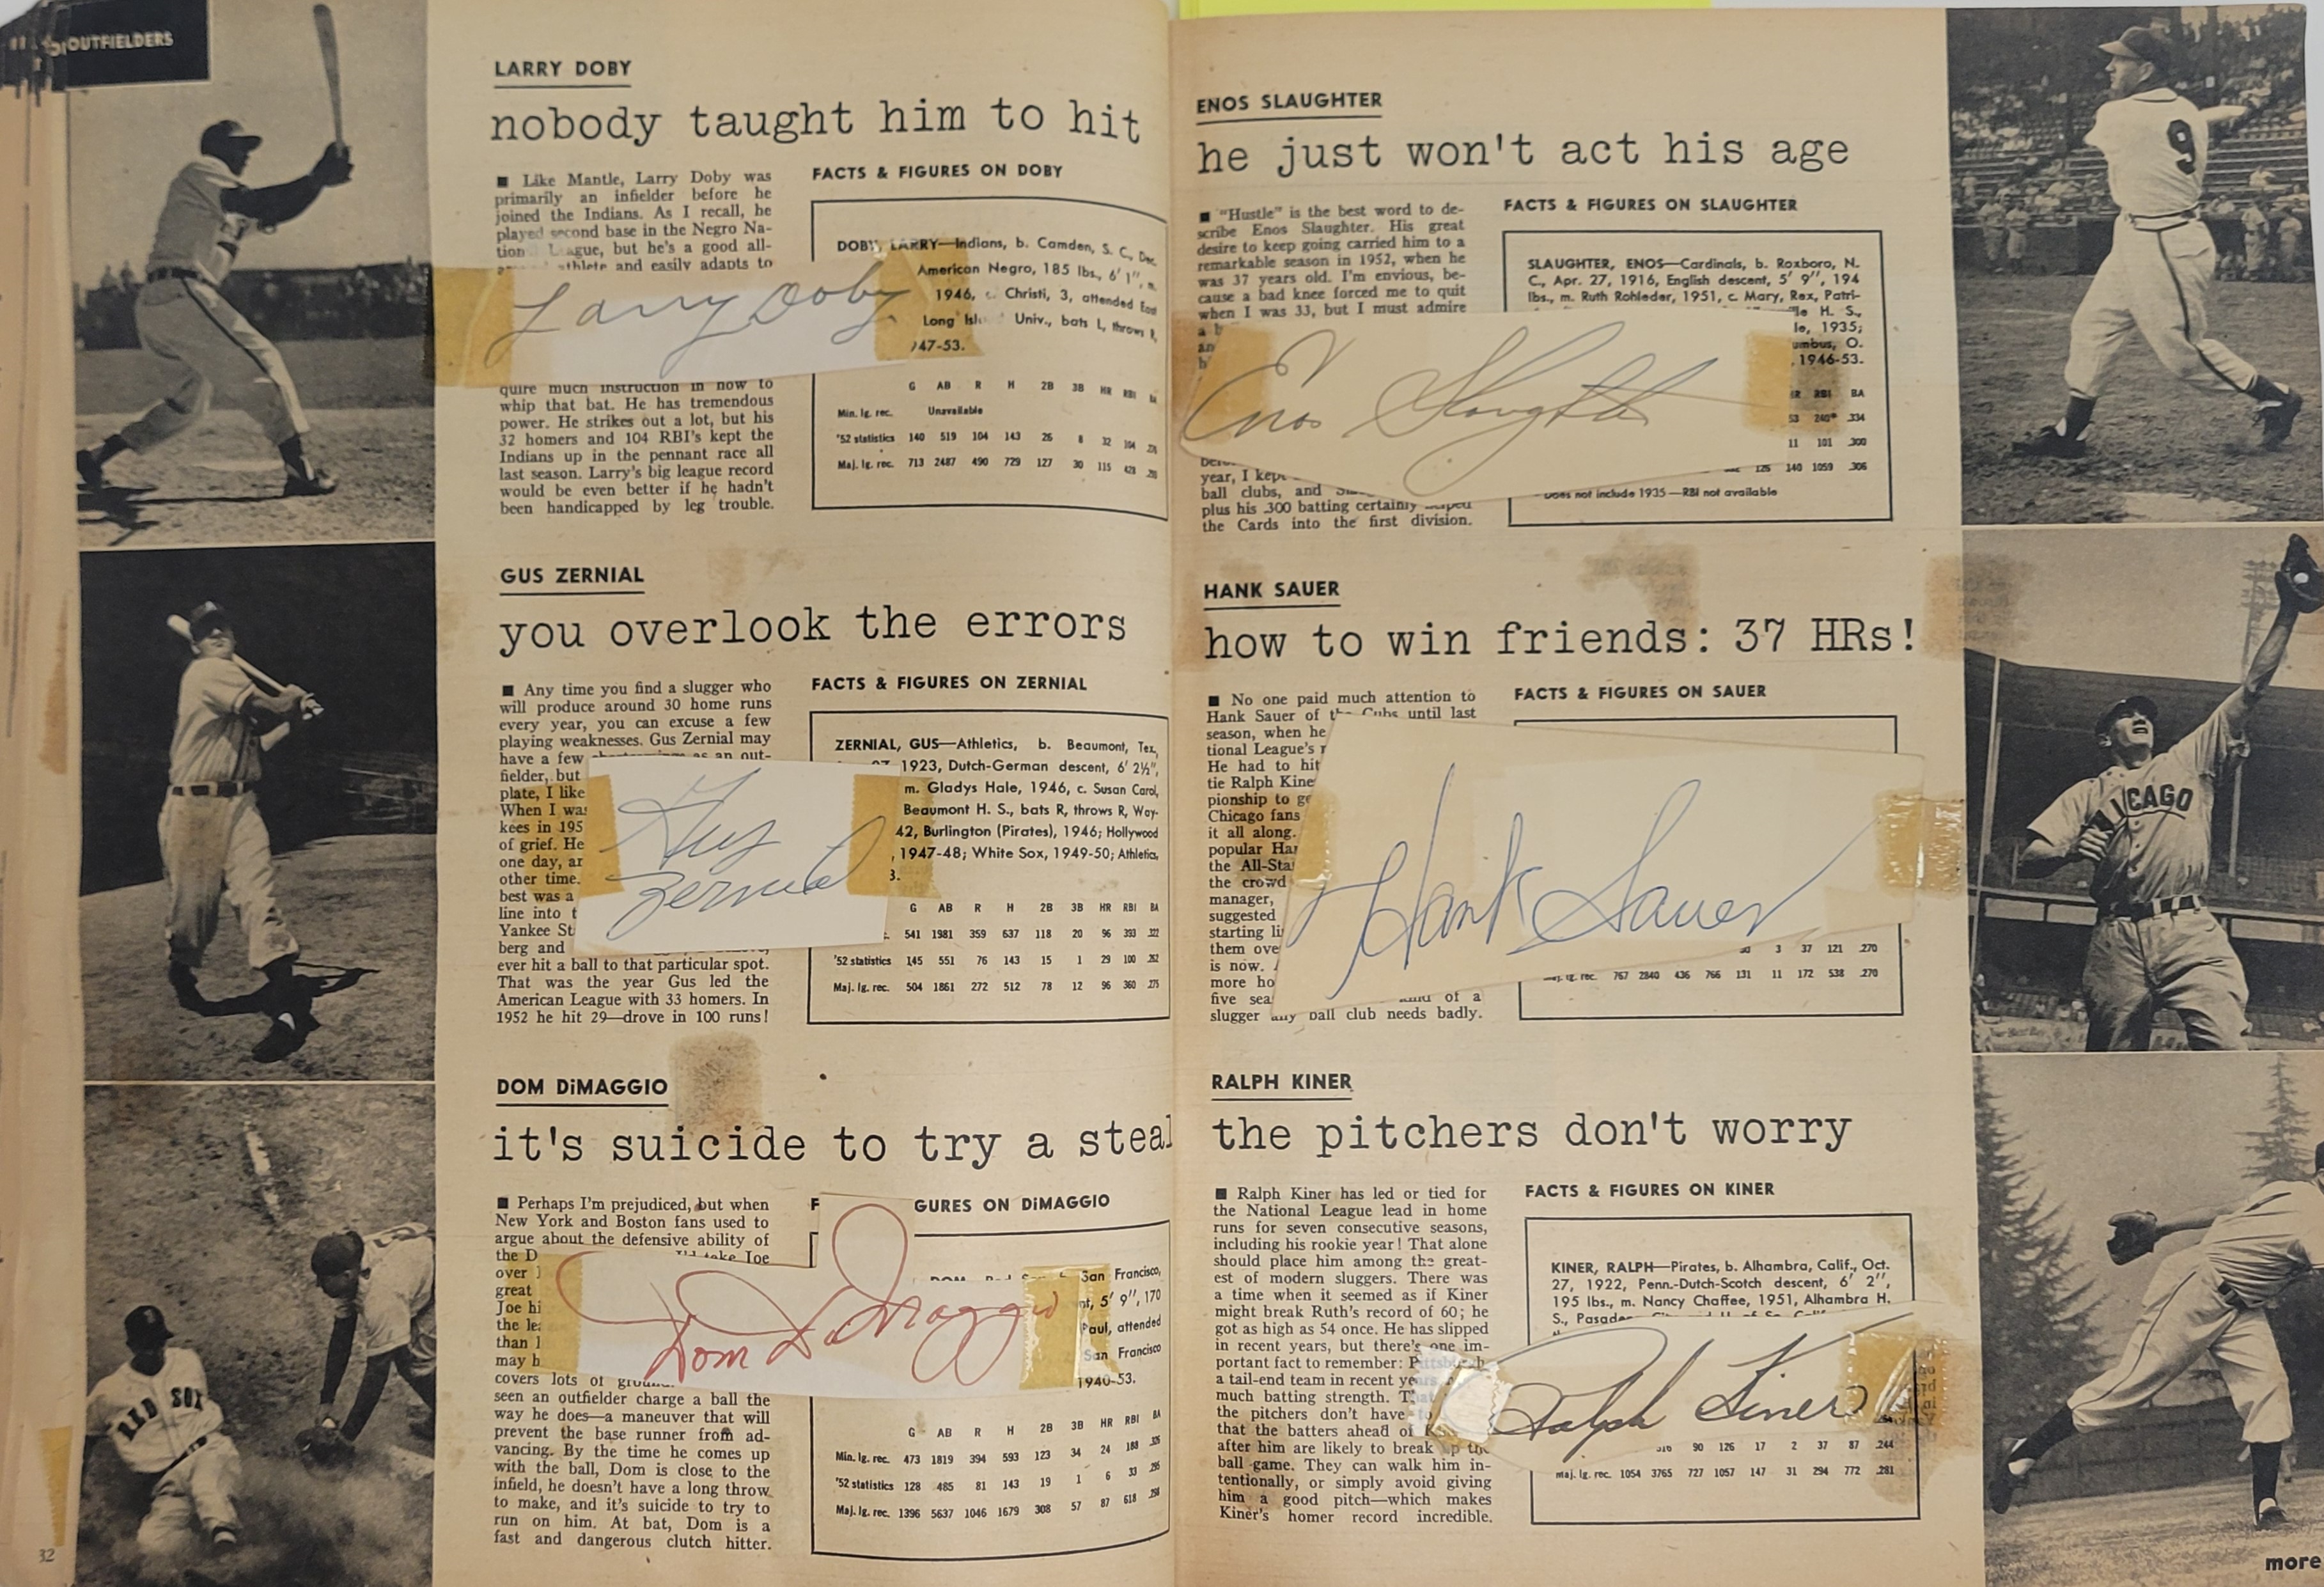 OUTFIELDERS
LARRY DOBY
nobody taught him to hit
■ Like Mantle, Larry Doby was
primarily an infielder before he
joined the Indians. As I recall, he
played second base in the Negro Na-
League, but he's a good all-
athlete and easily adapts to
Larry Doby
quire much instruction in how to
whip that bat. He has tremendous
power. He strikes out a lot, but his
32 homers and 104 RBI's kept the
Indians up in the pennant race all
last season. Larry's big league record
would be even better if he hadn't
been handicapped by leg trouble.
FACTS & FIGURES ON DOBY
DOBY, LARRY—Indians, b. Camden, S. C., Dec.
American Negro, 185 lbs., 6' 1", m.
1946, c. Christi, 3, attended East
Long Univ., bats L, throws R,
'47-53.
G AB R H 2B 3B HR RBI BA
Min. lg. rec. Unavailable
'52 statistics 140 519 104 143 26 8 32 104 .276
Maj. lg. rec. 713 2487 490 729 127 30 115 423
GUS ZERNIAL
you overlook the errors
■ Any time you find a slugger who
will produce around 30 home runs
every year, you can excuse a few
playing weaknesses. Gus Zernial may
have a few as an out-
fielder, but
plate, I like
When I was
kees in 195
of grief. He
one day, an
other time.
best was a
line into t
Yankee St
berg and
ever hit a ball to that particular spot.
That was the year Gus led the
American League with 33 homers. In
1952 he hit 29—drove in 100 runs!
Gus
Zernial
FACTS & FIGURES ON ZERNIAL
ZERNIAL, GUS—Athletics, b. Beaumont, Tex.,
1923, Dutch-German descent, 6' 2½",
m. Gladys Hale, 1946, c. Susan Carol,
Beaumont H. S., bats R, throws R, Way-
42, Burlington (Pirates), 1946; Hollywood
, 1947-48; White Sox, 1949-50; Athletics,
3.
G AB R H 2B 3B HR RBI BA
541 1981 359 637 118 20 96 393 .322
'52 statistics 145 551 76 143 15 1 29 100 .262
Maj. lg. rec. 504 1861 272 512 78 12 96 360 .275
DOM DiMAGGIO
it's suicide to try a steal
■ Perhaps I'm prejudiced, but when
New York and Boston fans used to
argue about the defensive ability of
the D I'd take Joe
over
great
Joe hi
the lea
than
may
covers lots of
seen an outfielder charge a ball the
way he does—a maneuver that will
prevent the base runner from ad-
vancing. By the time he comes up
with the ball, Dom is close to the
infield, he doesn't have a long throw
to make, and it's suicide to try to
run on him. At bat, Dom is a
fast and dangerous clutch hitter.
Dom DiMaggio
F GURES ON DiMAGGIO
San Francisco,
5' 9", 170
Paul, attended
San Francisco
1940-53.
G AB R H 2B 3B HR RBI BA
Min. lg. rec. 473 1819 394 593 123 34 24 188 .326
'52 statistics 128 485 81 143 19 1 6 33 .295
Maj. lg. rec. 1396 5637 1046 1679 308 57 87 618 .298
RED SOX
32
ENOS SLAUGHTER
he just won't act his age
■ "Hustle" is the best word to de-
scribe Enos Slaughter. His great
desire to keep going carried him to a
remarkable season in 1952, when he
was 37 years old. I'm envious, be-
cause a bad knee forced me to quit
when I was 33, but I must admire
Enos Slaughter
year, I kept
ball clubs, and
plus his .300 batting certainly helped
the Cards into the first division.
FACTS & FIGURES ON SLAUGHTER
SLAUGHTER, ENOS—Cardinals, b. Roxboro, N.
C., Apr. 27, 1916, English descent, 5' 9", 194
lbs., m. Ruth Rohleder, 1951, c. Mary, Rex, Patri-
H. S.,
1935;
O.
1946-53.
HR RBI BA
53 240* .334
11 101 .300
126 140 1059 .306
Does not include 1935—RBI not available
9
HANK SAUER
how to win friends: 37 HRs!
■ No one paid much attention to
Hank Sauer of the Cubs until last
season, when he
tional League's
He had to hit
tie Ralph Kine
pionship to
Chicago fans
it all along.
popular Ha
the All-Sta
the crowd
manager,
suggested
starting li
them ove
is now.
more ho
five sea of a
slugger any ball club needs badly.
Hank Sauer
FACTS & FIGURES ON SAUER
3 37 121 .270
Maj. lg. rec. 767 2840 436 766 131 11 172 538 .270
CHICAGO
RALPH KINER
the pitchers don't worry
■ Ralph Kiner has led or tied for
the National League lead in home
runs for seven consecutive seasons,
including his rookie year! That alone
should place him among the great-
est of modern sluggers. There was
a time when it seemed as if Kiner
might break Ruth's record of 60; he
got as high as 54 once. He has slipped
in recent years, but there's one im-
portant fact to remember: Pittsburgh
a tail-end team in recent years
much batting strength. That
the pitchers don't have to
that the batters ahead of
after him are likely to break up the
ball game. They can walk him in-
tentionally, or simply avoid giving
him a good pitch—which makes
Kiner's homer record incredible.
FACTS & FIGURES ON KINER
KINER, RALPH—Pirates, b. Alhambra, Calif., Oct.
27, 1922, Penn.-Dutch-Scotch descent, 6' 2",
195 lbs., m. Nancy Chaffee, 1951, Alhambra H.
S.,
Ralph Kiner
516 90 126 17 2 37 87 .244
Maj. lg. rec. 1054 3765 727 1057 147 31 294 772 .281
more